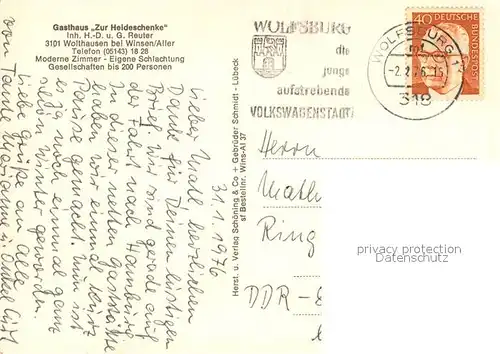 Gasthaus „Zur Heideschenke"
Inh. H.-D. u. G. Reuter
3101 Wolthausen bei Winsen/Aller
Telefon (05143) 18 28
Moderne Zimmer - Eigene Schlachtung
Gesellschaften bis 200 Personen
31.1.1976
Lieber Matl. herzlichen
Dank für Deinen lustigen
Brief. Wir sind gerade auf
der Fahrt nach Hamburg
In dieser netten Gaststätte
haben wir einmal kurz
Pause gemacht. Nun ist
es ja noch einmal ganz
schön Winter geworden.
Liebe Grüße an alle
von Tante Marianne u. Onkel
Herst. u. Verlag Schöning & Co + Gebrüder Schmidt - Lübeck
sf Bestellnr. Wins-Al 37
WOLFSBURG
die
junge
aufstrebende
VOLKSWAGENSTADT
WOLFSBURG 1
-2.2.76.
318
40 DEUTSCHE
BUNDESPOST
Herrn
Math
Ring
DDR-
privacy protection
Datenschutz